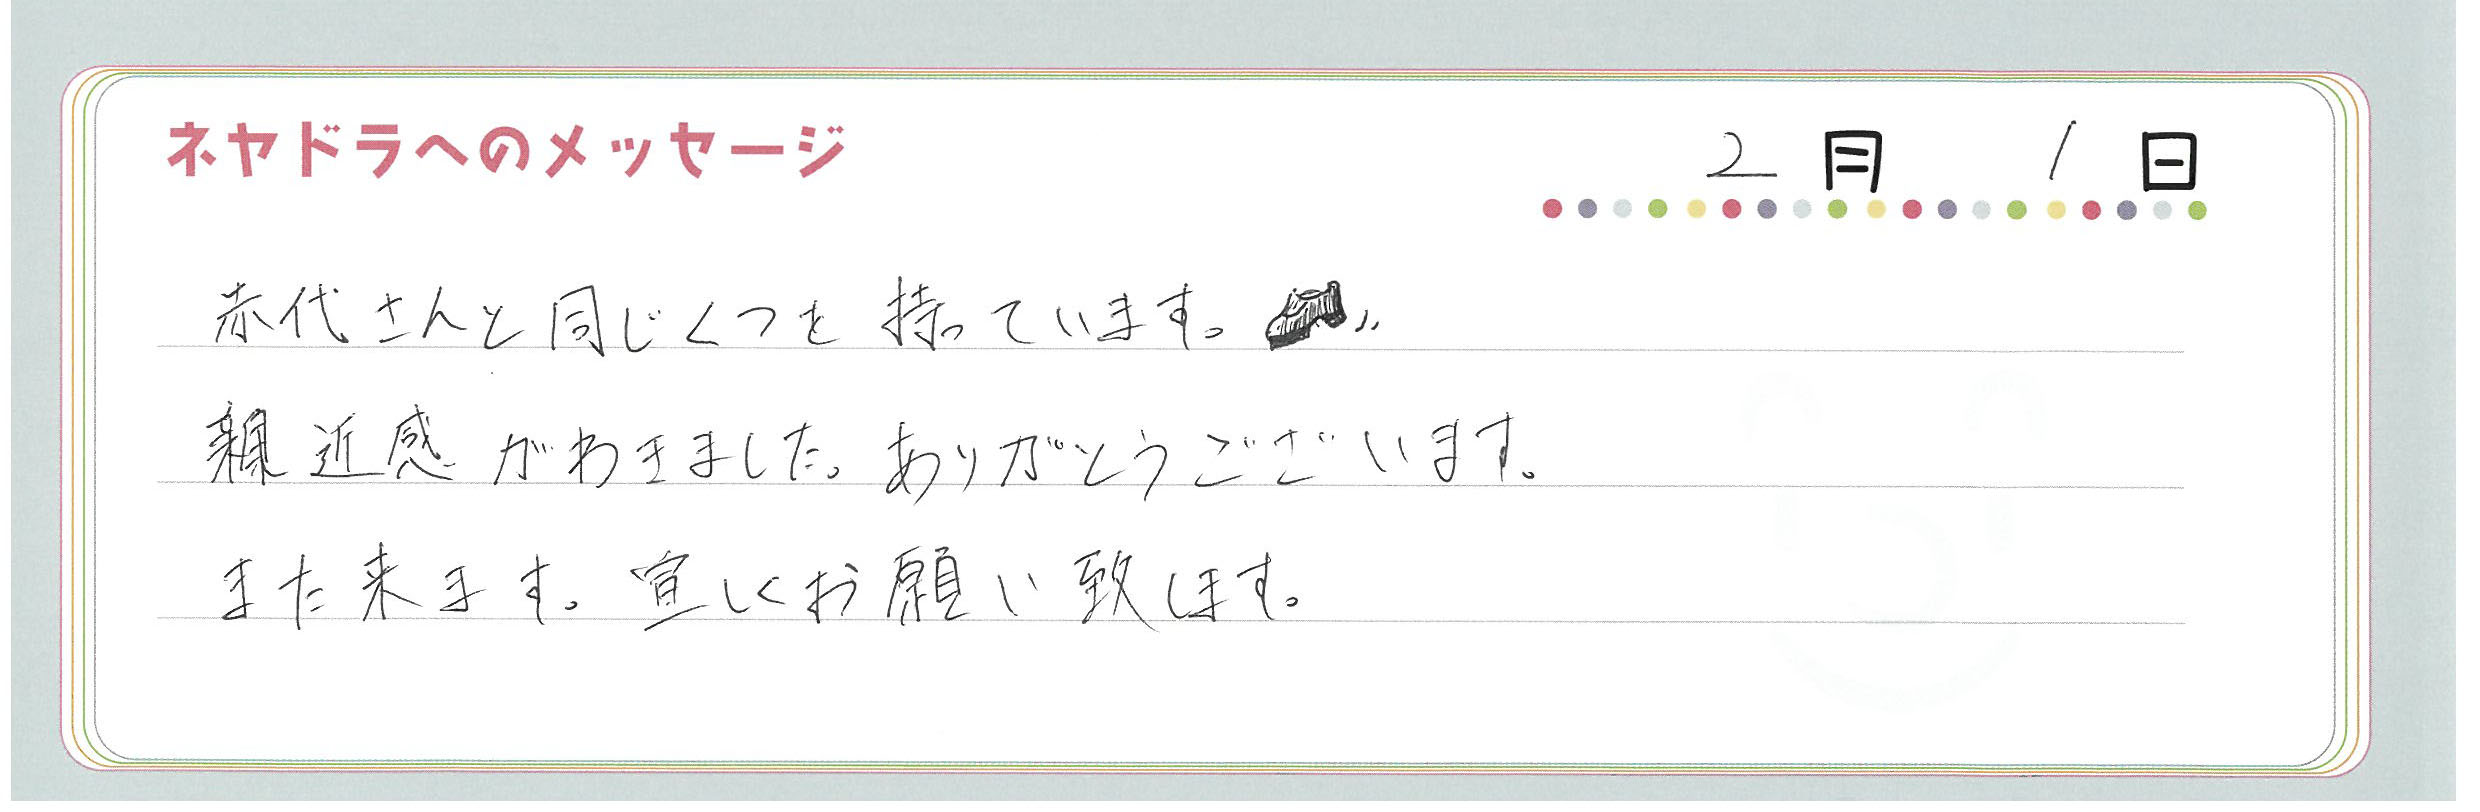 ネヤドラへのメッセージ
2月 1日
赤代さんと同じくつを持っています。
親近感がわきました。ありがとうございます。
また来ます。宜しくお願い致します。